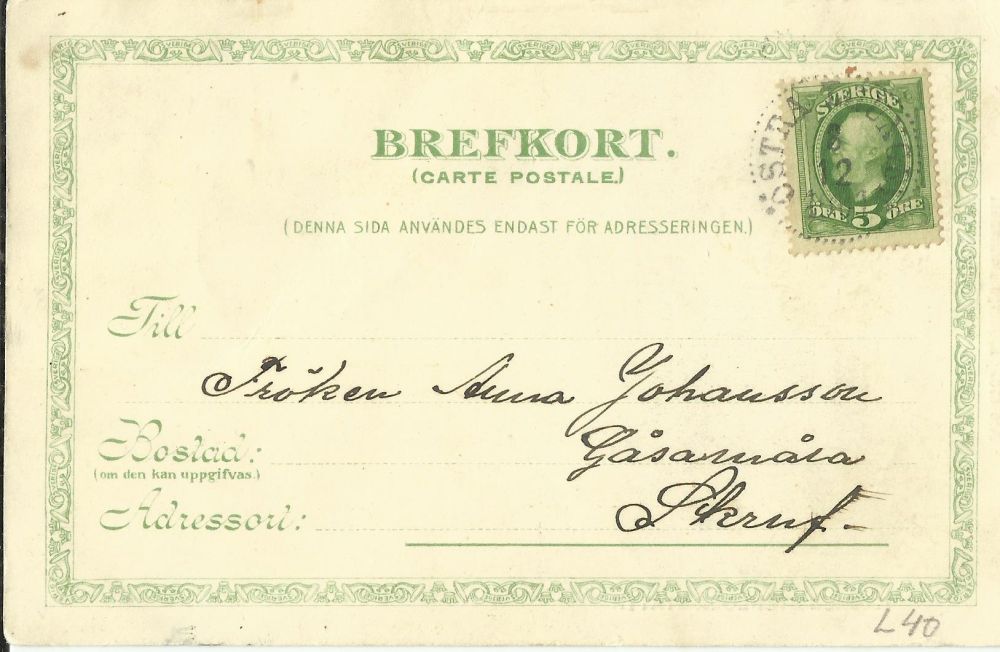 BREFKORT.
(CARTE POSTALE.)
(DENNA SIDA ANVÄNDES ENDAST FÖR ADRESSERINGEN.)
SVERIGE
8
12
FEM 5 ÖRE
Till
Fröken Anna Johansson
Bostad:
(om den kan uppgifvas.)
Gåsamåla
Adressort:
Skruf-
L40